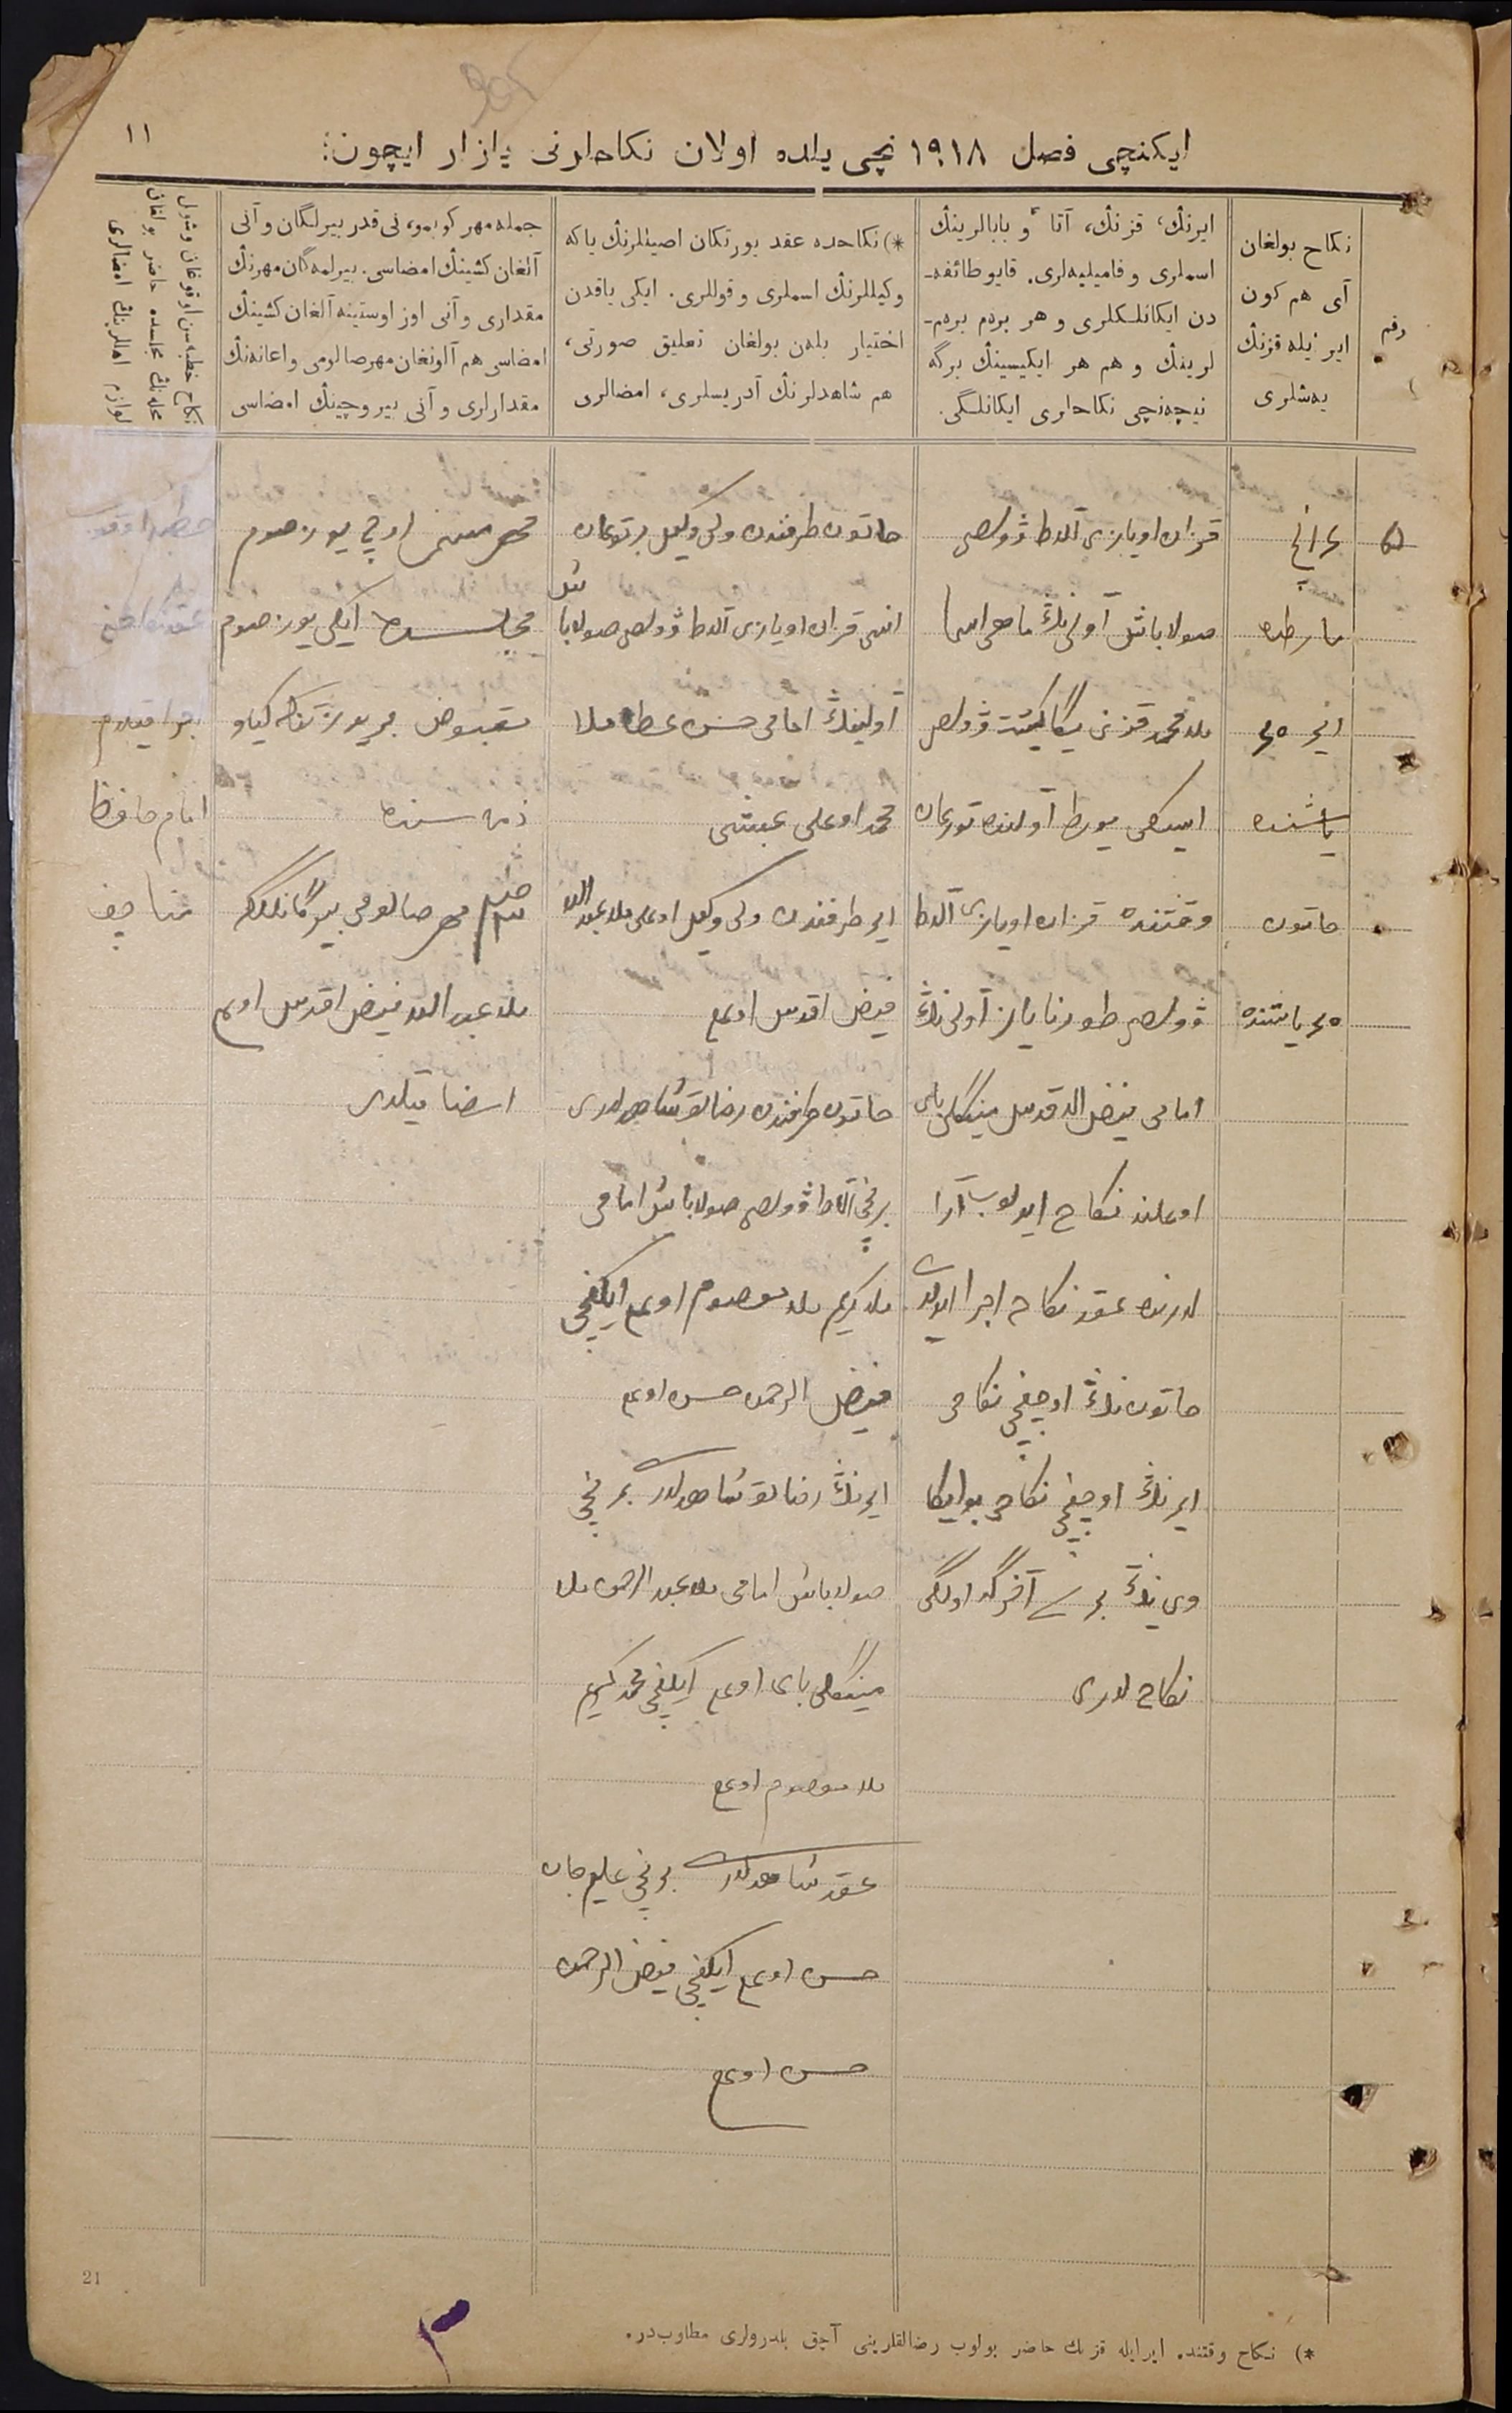 ایکنچی فصل ۱۹۱۸ نچی یلده اولان نکاحلرنی یازار ایچون:
۱۱
رقم
نکاح بولغان
آی هم کون
ایر ئیله قزنڭ
یه‌شلری
ایرنڭ، قزنڭ، آتا و بابالرینڭ
اسملری و فامیلیه‌لری. قایو طائفه‌-
دن ایکانلکلری و هر بردم بردم-
لرینڭ و هم هر ایکیسینڭ برگه
نیچه‌نچی نکاحلری ایکانلگی.
*) نکاحده عقد یورتکان اصیللرنڭ یا که
وکیللرنڭ اسملری و قوللری. ایکی یاقدن
اختیار بله‌ن بولغان تعلیق صورتی،
هم شاهدلرنڭ آدریسلری، امضالری
جمله مهر کوبمو، نی قدر بیرلگان و آنی
آلغان کشینڭ امضاسی. بیرلمه‌گان مهرنڭ
مقداری و آنی اوز اوستینه آلغان کشینڭ
امضاسی هم آلونغان مهر صالومی و اعانه‌نڭ
مقدارلری و آنی بیروچینڭ امضاسی
نکاح خطبه‌سن اوقوغان و شول
مجلسده حاضر بولغان
لوازم امضالری
۵
مارطده
ایر ۵۲
یاشنده
خاتون
۵۲ یاشنده
قزان اویازی آلاط ۋولصی
صولاباش آولی‌نڭ ماهی اسما
ملا محمد قزنی
ایسکی یورط آولنده تورغان
وقتنده قزان اویازی آلاط
ۋولصی طورنایاز آولی‌نڭ
امامی فیض القدس مینکلی بای
اوغلینه نکاح ایدلوب آرا
لارنده عقد نکاح اجرا ایدلدی
خاتون‌نڭ اوچنچی نکاحی
ایرنڭ اوچنچی نکاحی بو ایکا
وی‌نڭ بر سی آخرگه اولگی
نکاحلاری
خاتون طرفندن ولی وکیل بر توغان
انسی قزان اویازی آلاط ۋولصی صولاباش
آولینڭ امامی حسن عطا ملا
محمد اوغلی عبشی
ایر طرفندن ولی وکیل اوغلی ملا عبد الله
فیض اقدس اوغلی
خاتون طرفندن رضالق شاهدلری
برنچی آلاط ۋولصی صولاباش امامی
ملا کریم ملا معصوم اوغلی ایکنچی
فیض الرحمن حسن اوغلی
ایرنڭ رضالق شاهدلری برنچی
صولاباش امامی ملا عبد الرحمن ملا
مینکلی بای اوغلی ایکنچی محمد کریم
ملا معصوم اوغلی
عقد شاهدلری برنچی علیم جان
حسن اوغلی ایکنچی فیض الرحمن
حسن اوغلی
مهر مسمی اوچ یوز صوم
مجلسده ایکی یوز صوم
مقبوض بر یوز تنکه کیاو
ذمه سنده
مهر صالومی بیرگانلک
ملا عبد الله فیض اقدس اوغلی
امضا قیلدی
خطبه اوقو
عقد نکاحنی
اجرا قیلدم
امام حافظ
21
*) نکاح وقتنده ایر ایله قزنڭ حاضر بولوب رضالقلرینی آچق بلدرولری مطلوب‌در.